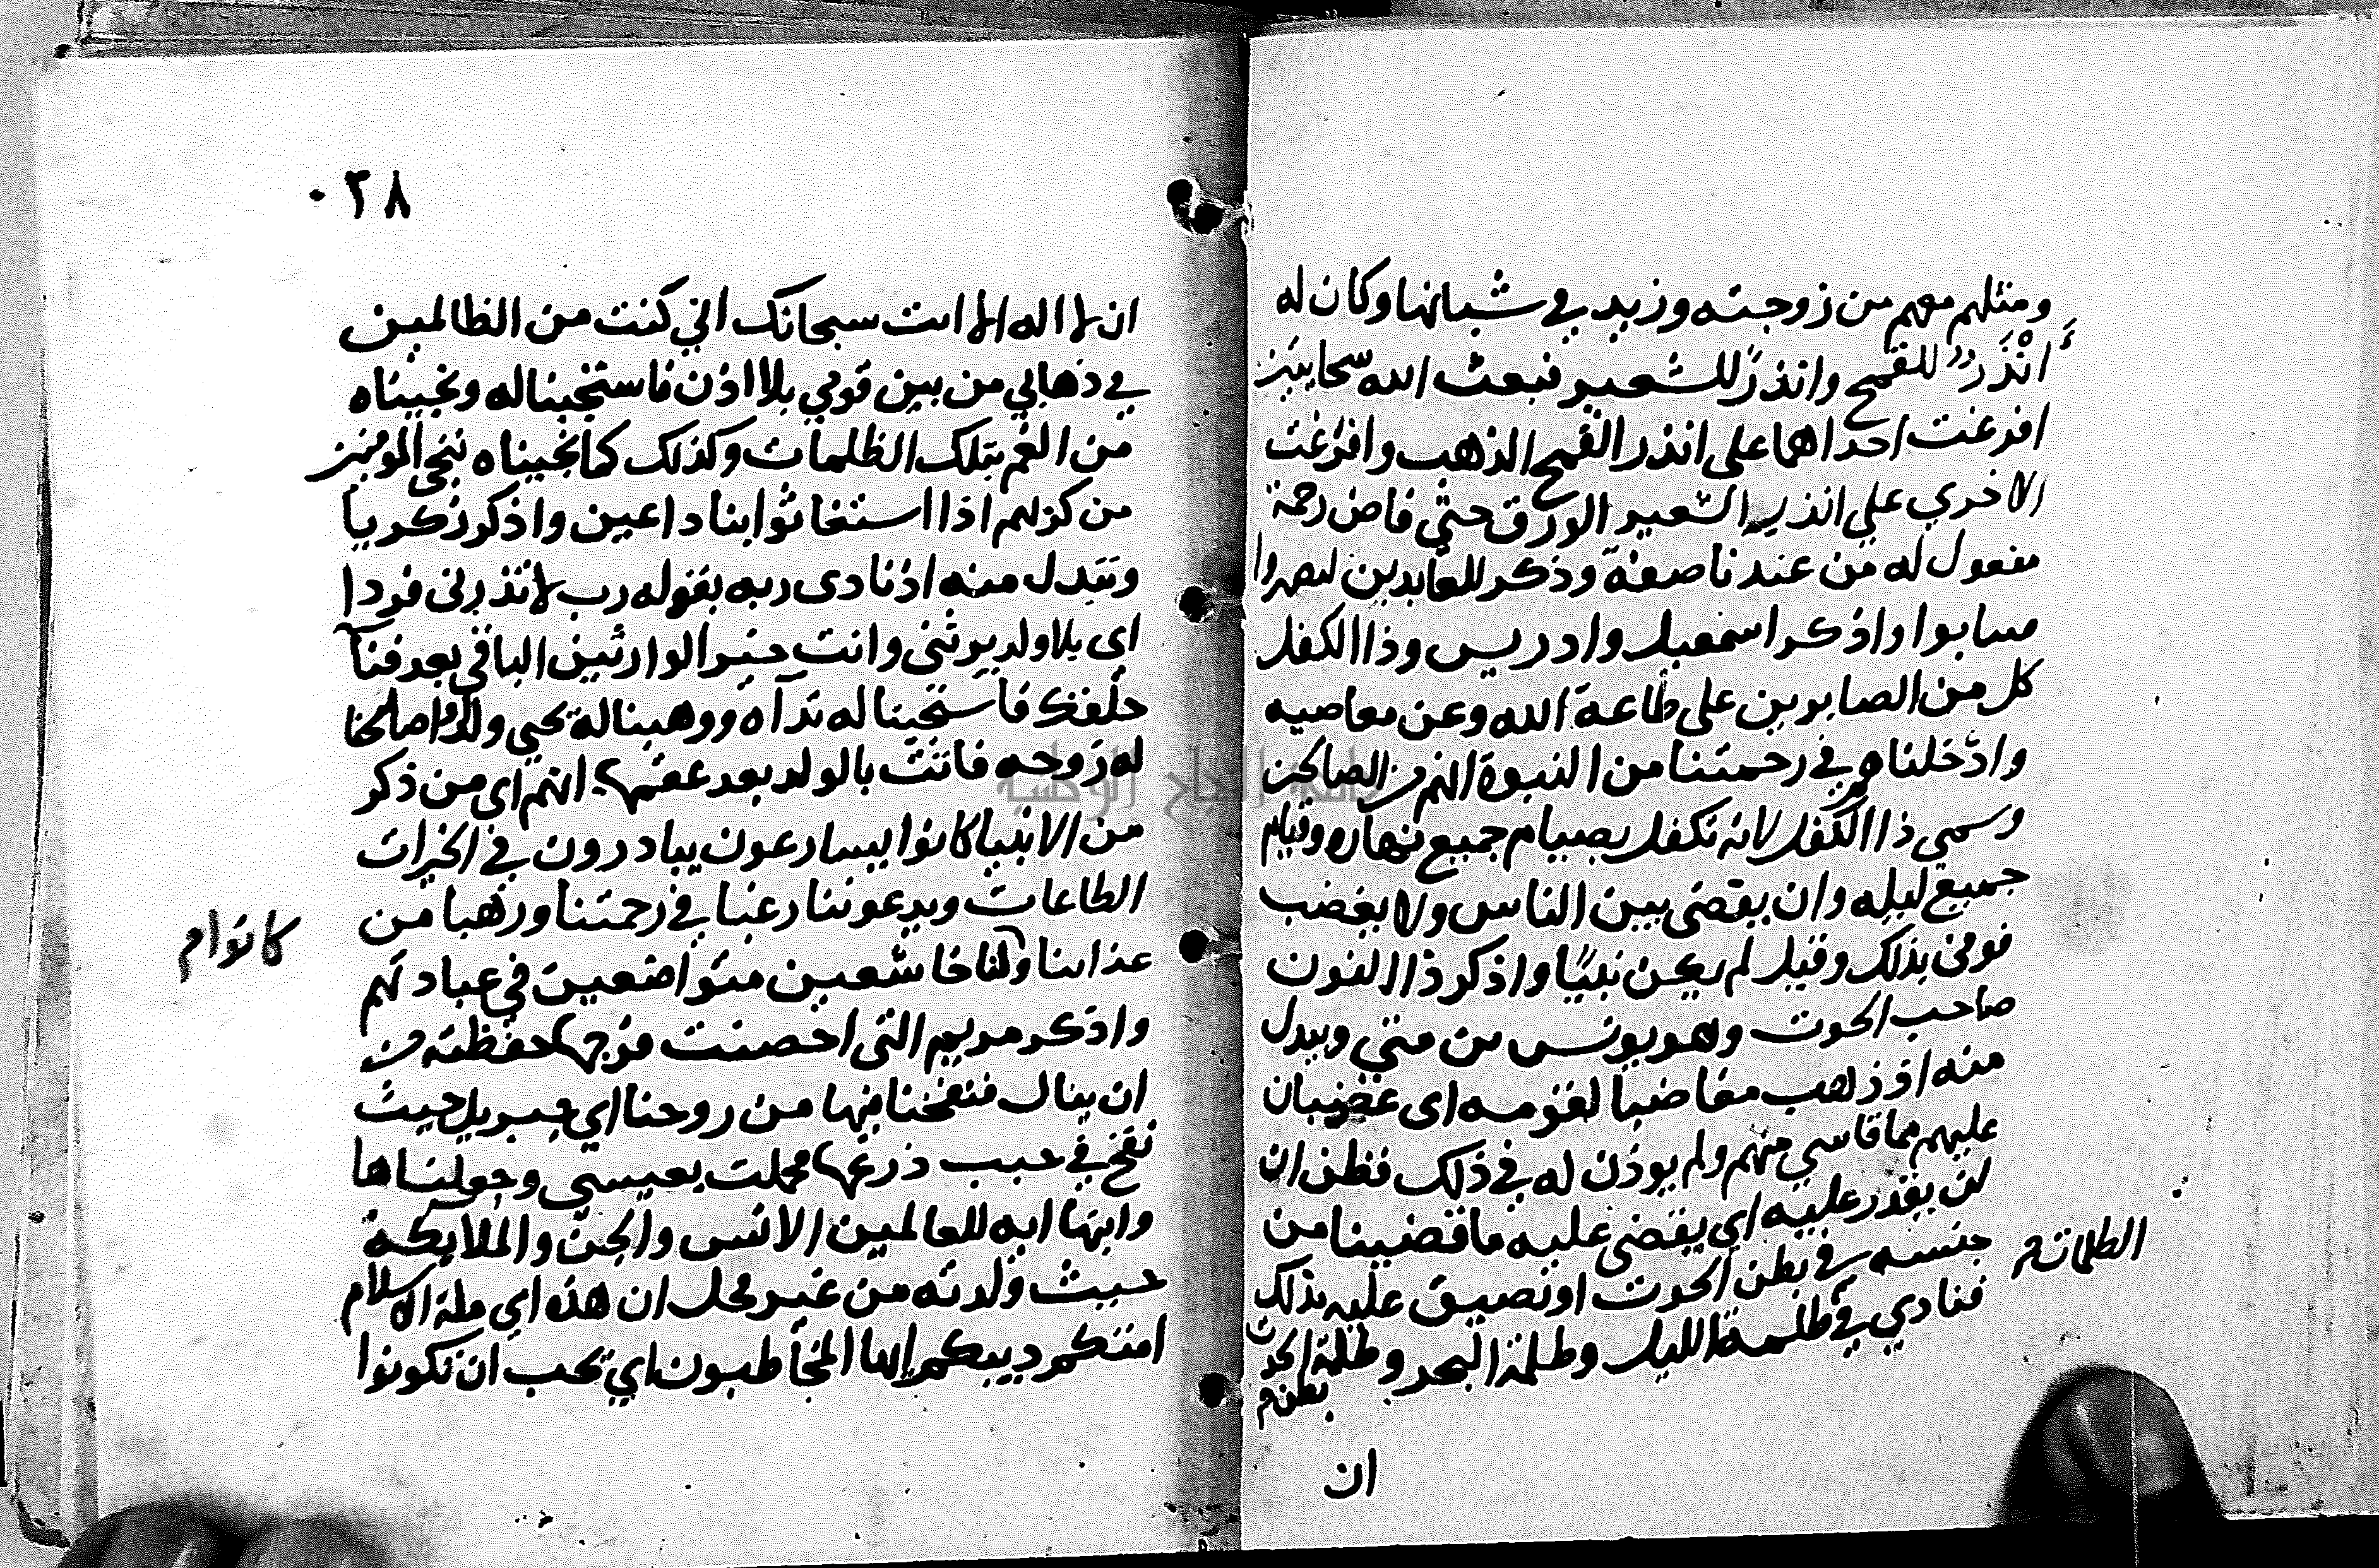 ومثلهم معهم من زوجته وزيد في شبابها وكان له
أَنْدَر للقمح واندر للشعير فبعث الله سحابتين
افرغت احداهما على اندر القمح الذهب وافرغت
الاخري علي اندر الشعير الورق حتي فاض رحمة
مفعول له من عندنا صفة وذكر للعابدين ليصبروا
فيثابوا واذكر اسمعيل وادريس وذا الكفل
كل من الصابرين على طاعة الله وعن معاصيه
وادخلناهم في رحمتنا من النبوة انهم من الصالحين
وسمي ذا الكفل لانه تكفل بصيام جميع نهاره وقيام
جميع ليله وان يقضى بين الناس ولا يغضب
فوفى بذلك وقيل لم يكن نبيًا واذكر ذا النون
صاحب الحوت وهو يونس من متي ويبدل
منه اذ ذهب مغاضبا لقومه اى غضبان
عليهم مما قاسي منهم ولم يوذن له في ذلك فظن ان
لن يقدر عليه اي يقضى عليه ما قضينا من
حبسه في بطن الحوت او نضيق عليه بذلك
فنادي في ظلمة الليل وظلمة البحر وظلمة الحوت
الظلمات م
بطن م
ان
٠٣٨
ان لا اله الا انت سبحانك اني كنت من الظالمين
في ذهابي من بين قومي بلا اذن فاستجبنا له ونجيناه
من الغم بتلك الظلمات وكذلك كما نجيناه ننجي المومنين
من كربهم اذا استغاثوا بنا داعين واذكر زكريا
ويبدل منه اذ نادى ربه بقوله رب لا تذرنى فردا
اى بلا ولد يرثنى وانت خير الوارثين الباقي بعد فنآ
خلقك فاستجبنا له ندآه ووهبنا له يحيي ولدا واصلحنا
له زوجه فاتت بالولد بعد عقمها انهم اى من ذكر
من الانبيا كانوا يسارعون يبادرون في الخيرات
الطاعات ويدعوننا رغبا في رحمتنا ورهبا من
عذابنا وكانوا لنا خاشعين متواضعين في عبادتهم
كانوا م
واذكر مريم التى احصنت فرجها حفظته من
ان ينال فنفخنا فيها من روحنا اي جبريل حيث
نفخ في جيب درعها فحملت بعيسى وجعلناها
وابنها ايه للعالمين الانس والجن والملايكة
حيث ولدته من غير فحل ان هذه اي ملة الاسلام
امتكم دينكم ايها المخاطبون اي يجب ان تكونوا